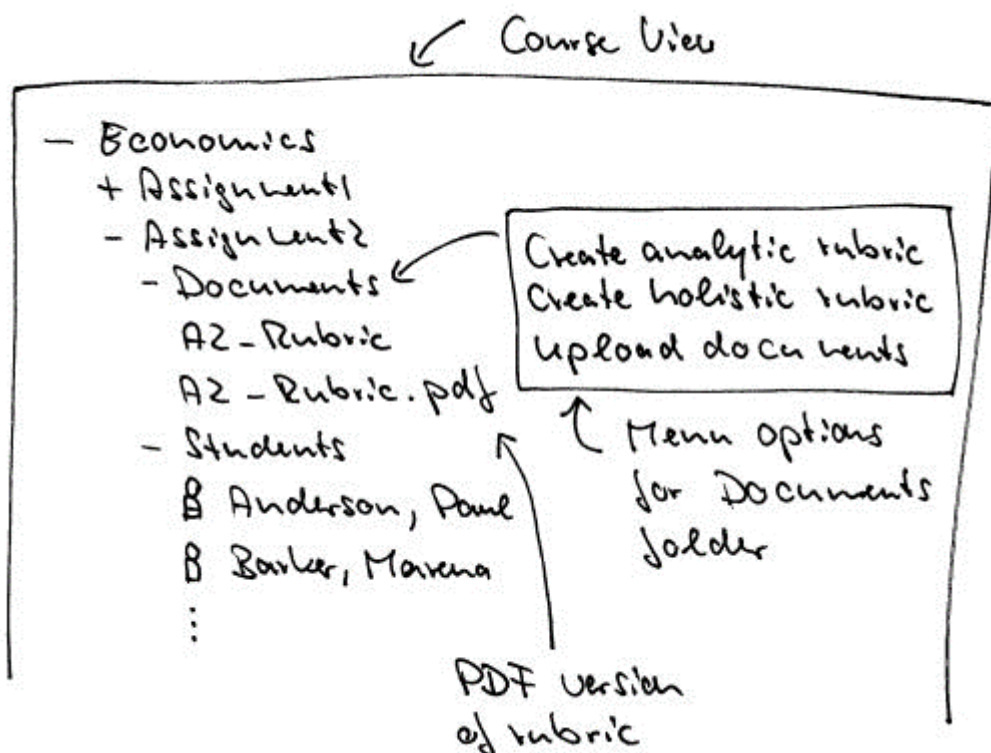 Course View
- Economics
+ Assignment1
- Assignment2
- Documents
A2-Rubric
A2-Rubric.pdf
- Students
Anderson, Paul
Barker, Marena
⋮
Create analytic rubric
Create holistic rubric
Upload documents
Menu options
for Documents
folder
PDF version
of rubric